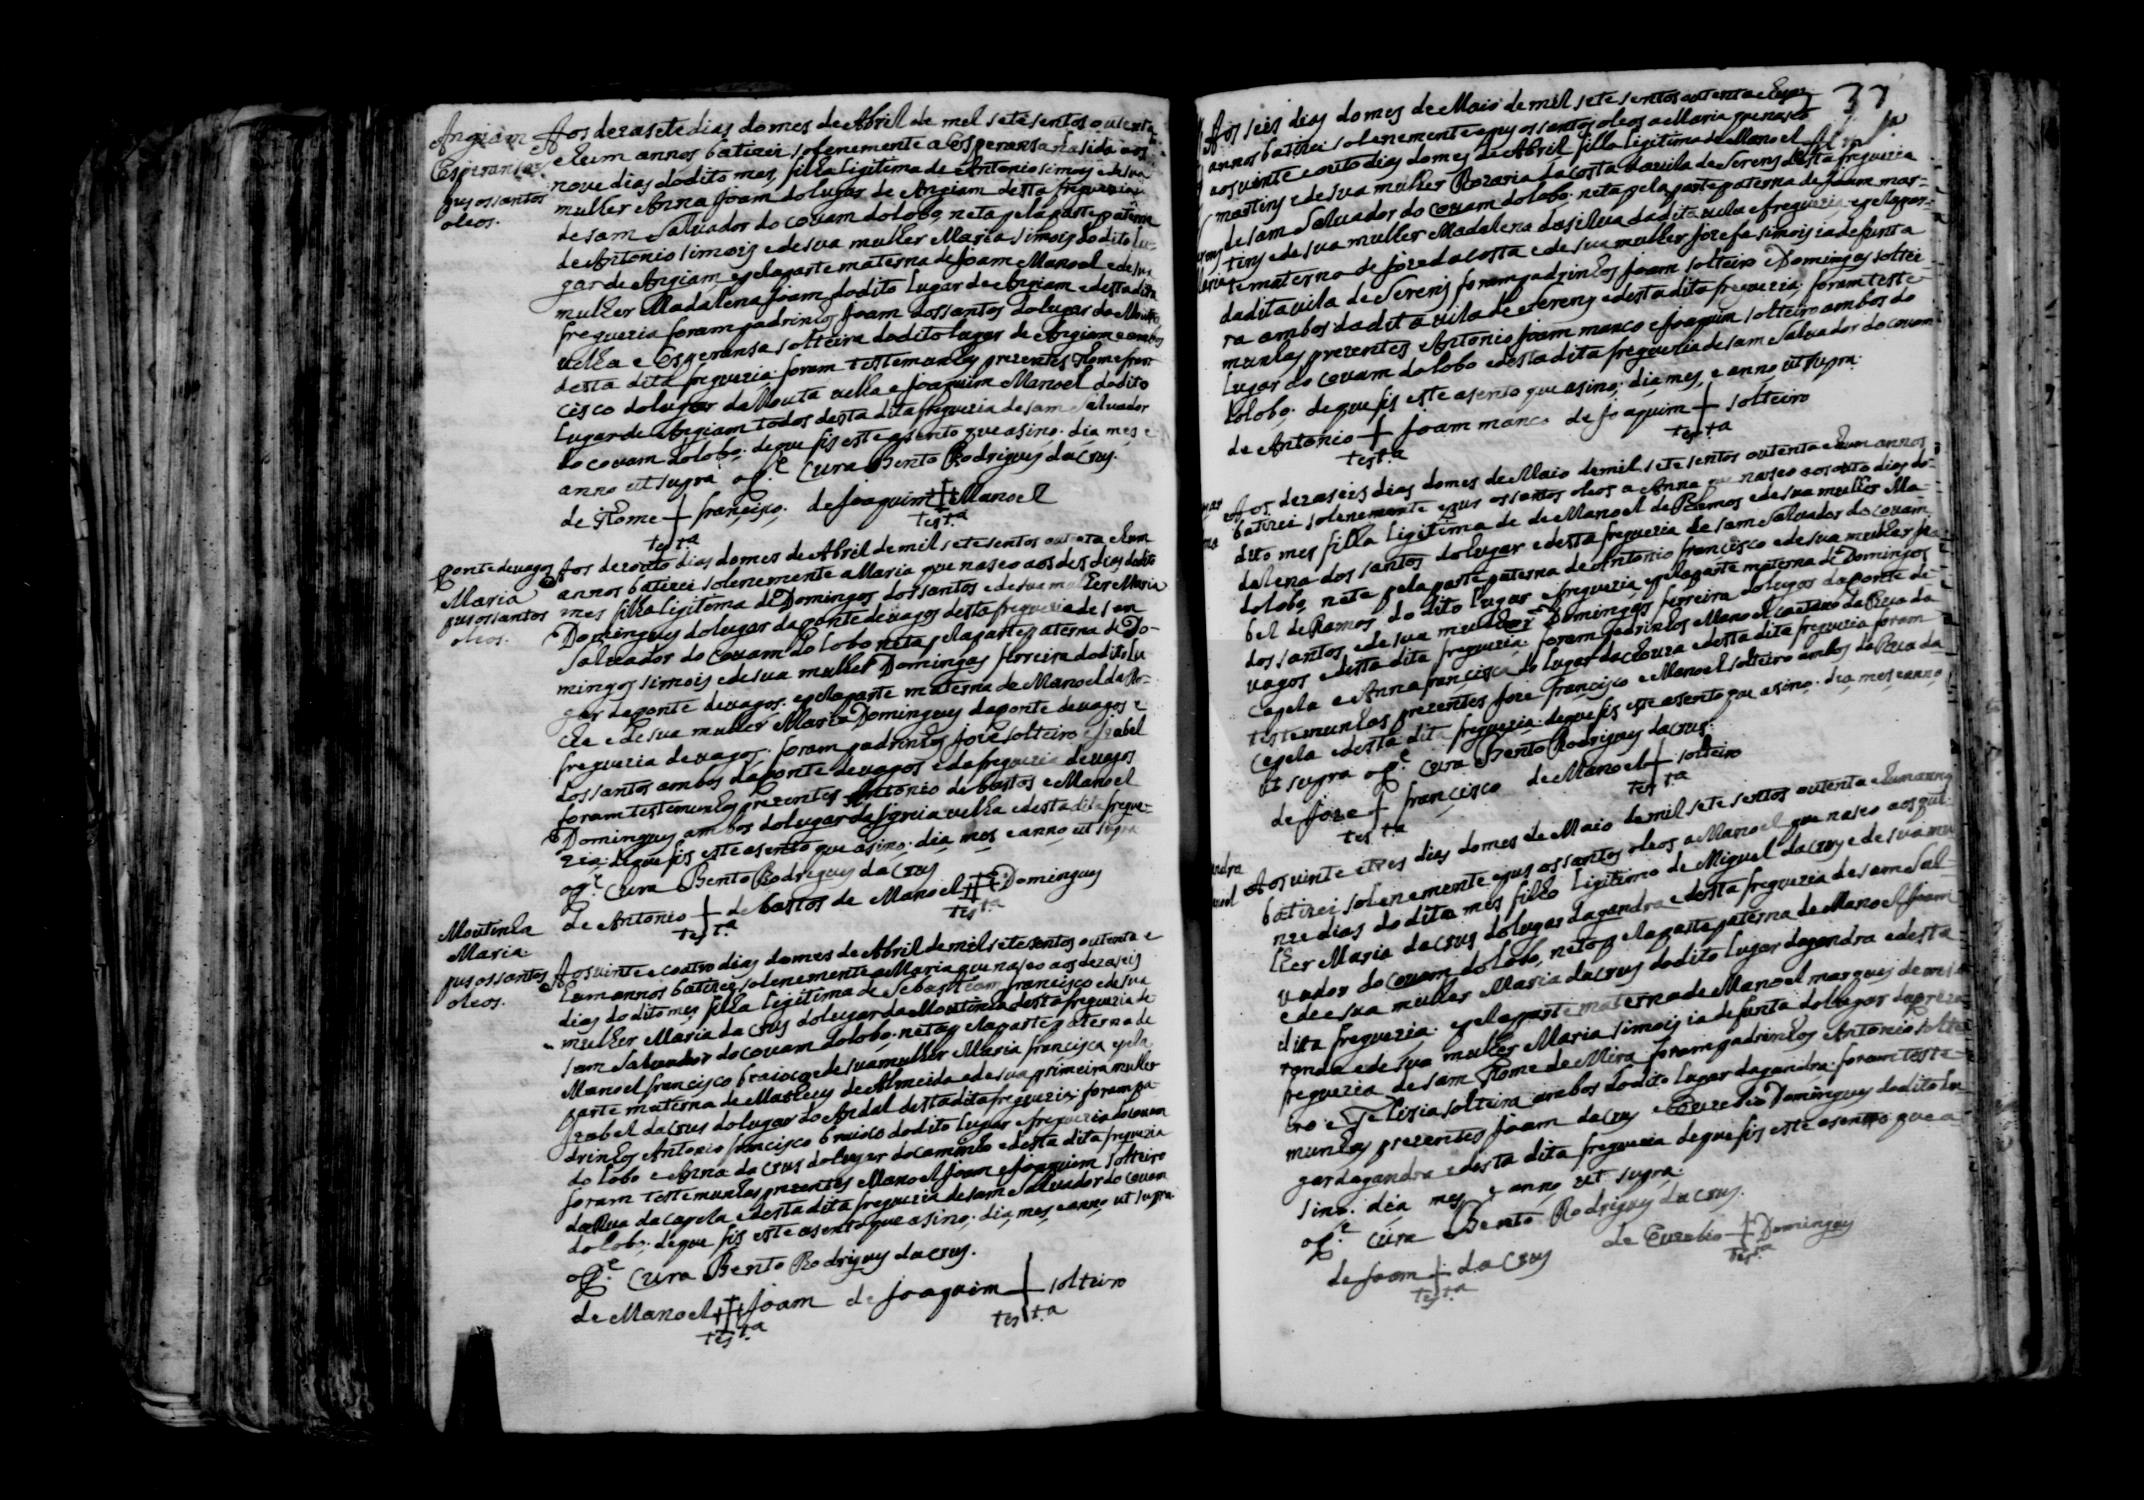 Angiam
Esperansa
pus os santos
oleos.
Aos dezasete dias do mes de Abril de mel sete sentos outenta
e hum annos batizei solenemente a Esperansa nasida aos
nove dias do dito mes, filha legitima de Antonio simois e de sua
mulher Anna Joam do lugar de Angiam desta freguezia
de sam Salvador do covam do lobo, neta pela parte paterna
de Antonio simois e de sua mulher Maria simois do dito lu-
gar de Angiam, e pela parte materna de Joam Manoel e de sua
mulher Madalena Joam do dito Lugar de Angiam e desta dita
freguezia foram padrinhos Joam dos santos do lugar da Mouta
velha e Esperansa solteira do dito lugar de Angiam e ambos
desta dita freguezia. foram testemunhas prezentes Thome fran-
cisco do lugar da Mouta velha e Joaquim Manoel do dito
Lugar de Angiam todos desta dita freguezia de sam Salvador
do covam do lobo: de que fis este asento que asino. dia mes e
anno ut supra o P.e Cura Bento Rodriguis da Crus.
de Thome + francisco. de Joaquim + Manoel
test.a test.a
Ponte de vagos
Maria
pus os santos
oleos.
Aos dezouto dias do mes de Abril de mil sete sentos outenta e hum
annos batizei solenemente a Maria que naseo aos des dias do dito
mes filha legitima de Domingos dos santos e de sua mulher Maria
Dominguis do lugar da ponte de vagos desta freguezia de sam
Salvador do Covam do lobo neta pela parte paterna de Do-
mingos simois e de sua mulher Domingas ferreira do dito lu
gar da ponte de vagos. e pela parte materna de Manoel da Ro-
cha e de sua mulher Maria Dominguis da ponte de vagos e
freguezia de vagos. foram padrinhos Joze solteiro e Izabel
dos santos ambos da ponte de vagos e da freguezia de vagos
foram testemunhas prezentes Antonio de bastos e Manoel
Dominguis ambos do lugar da signia velha e desta dita fregue-
zia: de que fis este asento que asino. dia mes e anno ut supra
o P.e Cura Bento Rodriguis da Crus
de Antonio + de bastos de Manoel + Dominguis
test.a test.a
Moutinha
Maria
pus os santos
oleos.
Aos vinte e coatro dias do mes de Abril de mil sete sentos outenta e
hum annos batizei solenemente a Maria que naseo aos dezaseis
dias do dito mes filha legitima de Sebastiam francisco e de sua
mulher Maria da Crus do lugar da Moutinha desta freguezia de
sam Salvador do covam do lobo. neta pela parte paterna de
Manoel francisco braioco e de sua mulher Maria francisca e pela
parte materna de Matheus de Almeida e de sua primeira mulher
Izabel da Crus do lugar do Andal desta dita freguezia: foram pa-
drinhos Antonio francisco braioco do dito Lugar e freguezia do covam
do lobo e Anna da Crus do lugar do caminho e desta dita freguezia
foram testemunhas prezentes Manoel Joam e Joaquim solteiro
da Rua da capela e desta dita freguezia de sam Salvador do covam
do lobo: de que fis este asento que asino. dia mes e anno ut supra
o P.e Cura Bento Rodriguis da crus.
de Manoel + Joam de Joaquim + solteiro
test.a test.a
37
Aos seis dias do mes de Maio de mil sete sentos outenta e hum
annos batizei solenemente e pus os santos oleos a Maria que naseo
aos vinte e outo dias do mes de Abril filha legitima de Manoel
martins e de sua mulher Rozaria da costa da vila de Serens desta freguezia
de sam Salvador do covam do lobo. neta pela parte paterna de Joam mar-
tins e de sua mulher Madalena da silva da dita vila e freguezia e pela par-
te materna de Joze da costa e de sua mulher Jozefa simois ia defunta
da dita vila de Serens foram padrinhos Joam solteiro e Domingas soltei-
ra ambos da dita vila de Serens e desta dita freguezia: foram teste
munhas prezentes Antonio Joam manco e Joaquim solteiro ambos do
Lugar do covam do lobo e desta dita freguezia de sam Salvador do covam
do lobo. de que fis este asento que asino: dia mes e anno ut supra.
de Antonio + Joam manco de Joaquim + solteiro
test.a test.a
Aos dezaseis dias do mes de Maio de mil sete sentos outenta e hum annos
batizei solenemente e pus os santos oleos a Anna que naseo aos outo dias do
dito mes filha legitima de de Manoel de Ramos e de sua mulher Ma-
dalena dos santos do lugar e desta freguezia de sam Salvador do covam
do lobo, nete pela parte paterna de Antonio francisco e de sua mulher Iza-
bel de Ramos do dito lugar e freguezia, e pela parte materna de Domingos
dos santos e de sua mulher Domingas ferreira do lugar da ponte de
vagos e desta dita freguezia: foram padrinhos Manoel caetano da Rua da
capela e Anna francisca do lugar da choura e desta dita freguezia foram
testemunhas prezentes Joze francisco e Manoel solteiro ambos da Rua da
capela e desta dita freguezia: de que fis este asento que asino. dia mes e anno
ut supra o P.e Cura Bento Rodriguis da crus.
de Joze + francisco de Manoel + solteiro
test.a test.a
Aos vinte e tres dias do mes de Maio de mil sete sentos outenta e hum annos
batizei solenemente e pus os santos oleos a Manoel que naseo aos quin-
nze dias do dito mes filho legitimo de Miguel da crus e de sua mu
lher Maria da crus do lugar da gandra e desta freguezia de sam Sal-
vador do covam do lobo, neto pela parte paterna de Manoel Joam
e de sua mulher Maria da crus do dito lugar da gandra e desta
dita freguezia. e pela parte materna de Manoel marques de mi
randa e de sua mulher Maria simois ia defunta do lugar da preza
freguezia de sam Thome de Mira foram padrinhos Antonio soltei
ro e Felizia solteira ambos do dito lugar da gandra. foram teste-
munhas prezentes Joam da crus e Euzebio Dominguis do dito lu-
gar da gandra e desta dita freguezia de que fis este asento que a-
sino. dia mes e anno ut supra.
o P.e Cura Bento Rodriguis da crus.
de Joam + da Crus de Euzebio + Dominguis
test.a test.a